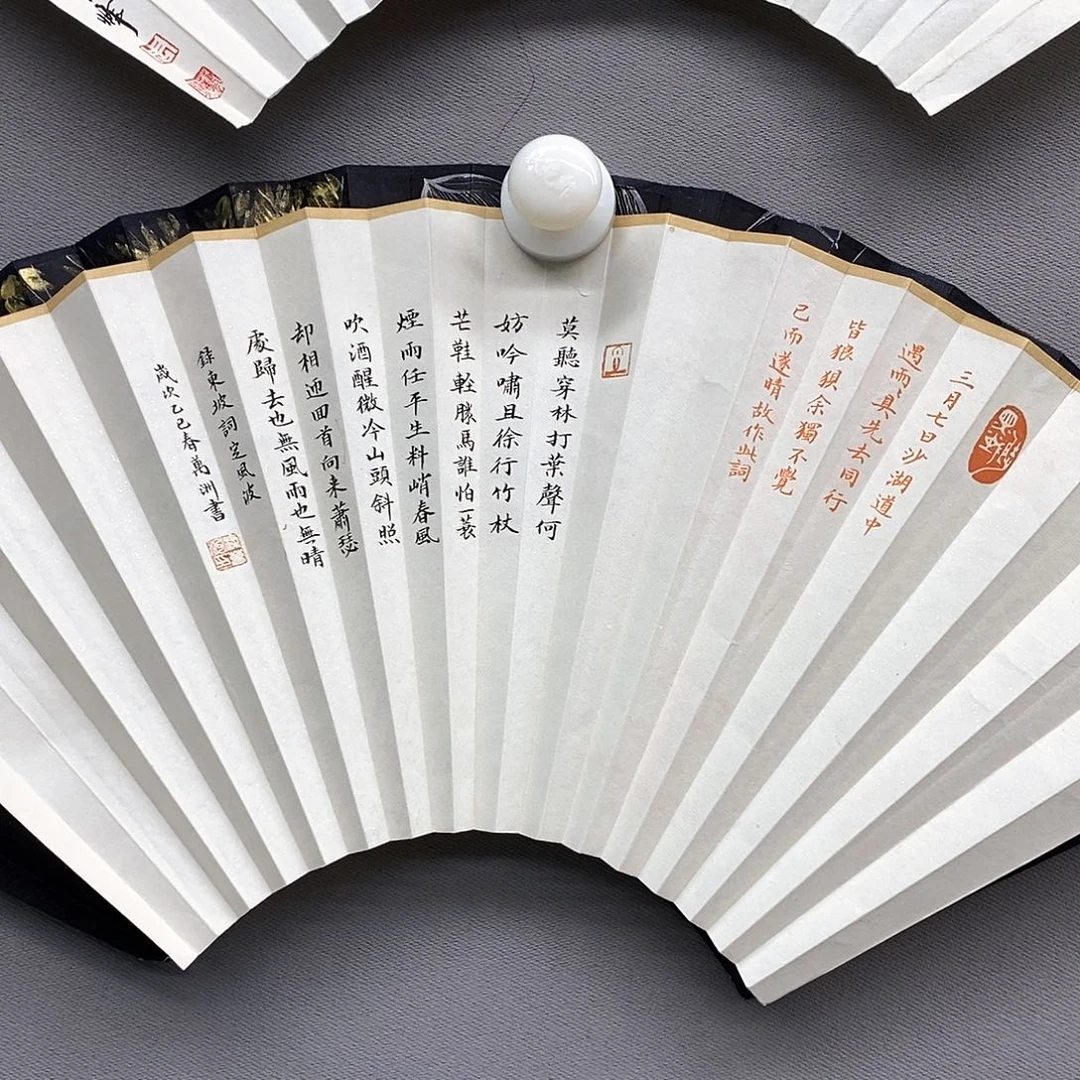 三月七日沙湖道中
遇雨〻具先去同行
皆狼狽余獨不覺
已而遂晴故作此詞
莫聽穿林打葉聲何
妨吟嘯且徐行竹杖
芒鞋輕勝馬誰怕一蓑
煙雨任平生料峭春風
吹酒醒微冷山頭斜照
却相迎回首向来蕭瑟
處歸去也無風雨也無晴
錄東坡詞定風波
歲次乙巳春萬洲書